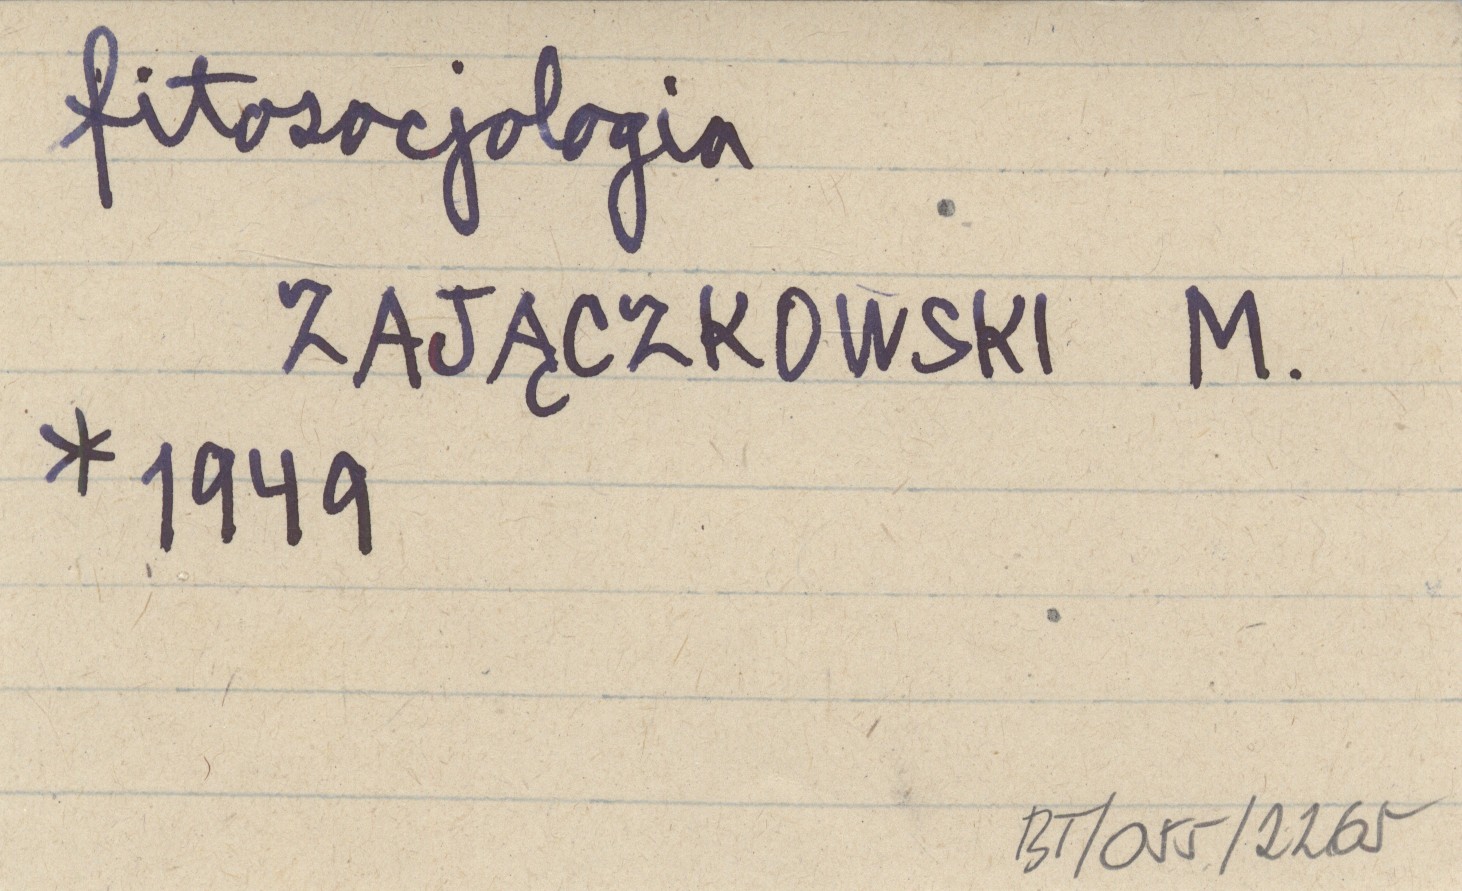 fitosocjologia
ZAJĄCZKOWSKI M.
* 1949
BT/055/2265